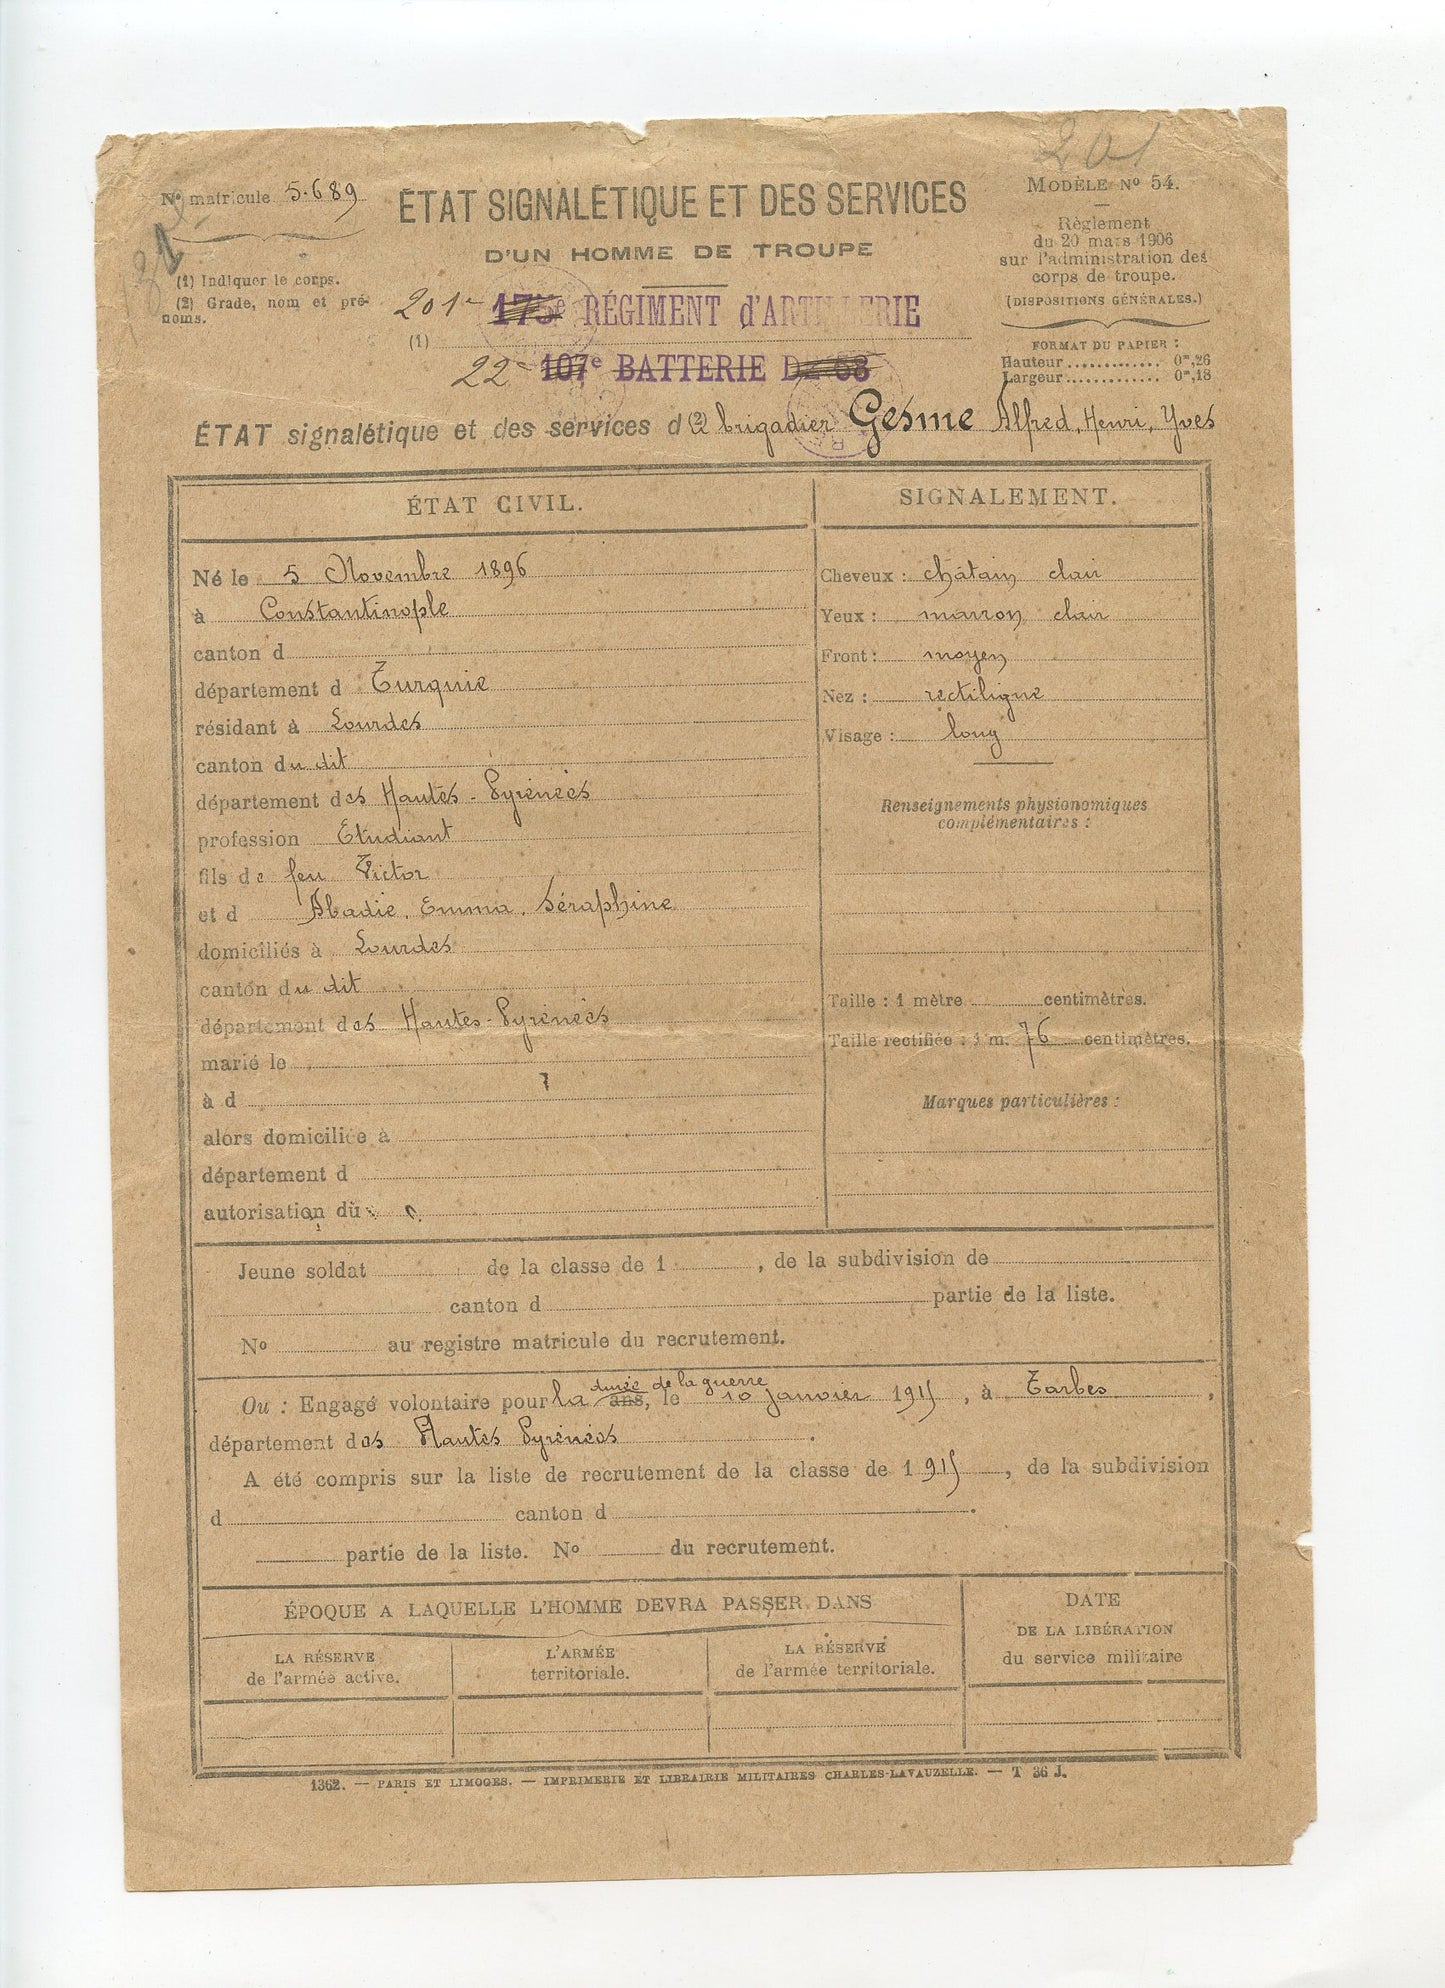 201
No matricule 5.689
ÉTAT SIGNALÉTIQUE ET DES SERVICES
MODÈLE No 54.
D'UN HOMME DE TROUPE
Règlement
du 20 mars 1906
sur l'administration des
corps de troupe.
(DISPOSITIONS GÉNÉRALES.)
(1) Indiquer le corps.
(2) Grade, nom et pré-
noms.
201e 175e RÉGIMENT d'ARTILLERIE
(1)
22e 107e BATTERIE DE 58
FORMAT DU PAPIER :
Hauteur ............. 0m,26
Largeur ............. 0m,18
ÉTAT signalétique et des services d (2) brigadier Gesme Alfred, Henri, Yves
ÉTAT CIVIL.
Né le 5 Novembre 1896
à Constantinople
canton d
département d Turquie
résidant à Lourdes
canton du dit
département des Hautes-Pyrénées
profession Etudiant
fils de feu Victor
et d Abadie, Emma, Séraphine
domiciliés à Lourdes
canton du dit
département des Hautes-Pyrénées
marié le
à d
alors domiciliée à
département d
autorisation du
SIGNALEMENT.
Cheveux : châtain clair
Yeux : marron clair
Front : moyen
Nez : rectiligne
Visage : long
Renseignements physionomiques
complémentaires :
Taille : 1 mètre centimètres.
Taille rectifiée : 1 m. 76 centimètres.
Marques particulières :
Jeune soldat de la classe de 1 , de la subdivision de
canton d partie de la liste.
No au registre matricule du recrutement.
Ou : Engagé volontaire pour la durée de la guerre ans, le 10 janvier 1915, à Tarbes,
département des Hautes Pyrénées.
A été compris sur la liste de recrutement de la classe de 1915, de la subdivision
d canton d .
partie de la liste. No du recrutement.
ÉPOQUE A LAQUELLE L'HOMME DEVRA PASSER DANS
LA RÉSERVE
de l'armée active.
L'ARMÉE
territoriale.
LA RÉSERVE
de l'armée territoriale.
DATE
DE LA LIBÉRATION
du service militaire
1362. — PARIS ET LIMOGES. — IMPRIMERIE ET LIBRAIRIE MILITAIRES CHARLES-LAVAUZELLE. — T 36 J.